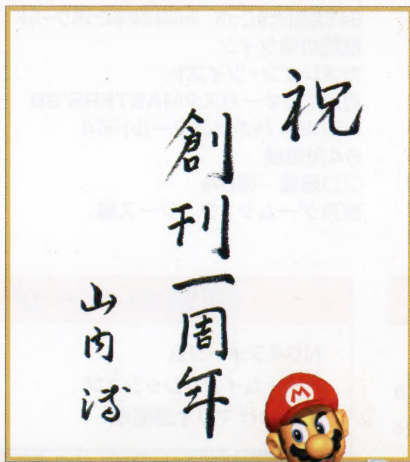 祝
創刊一周年
山内溥
M